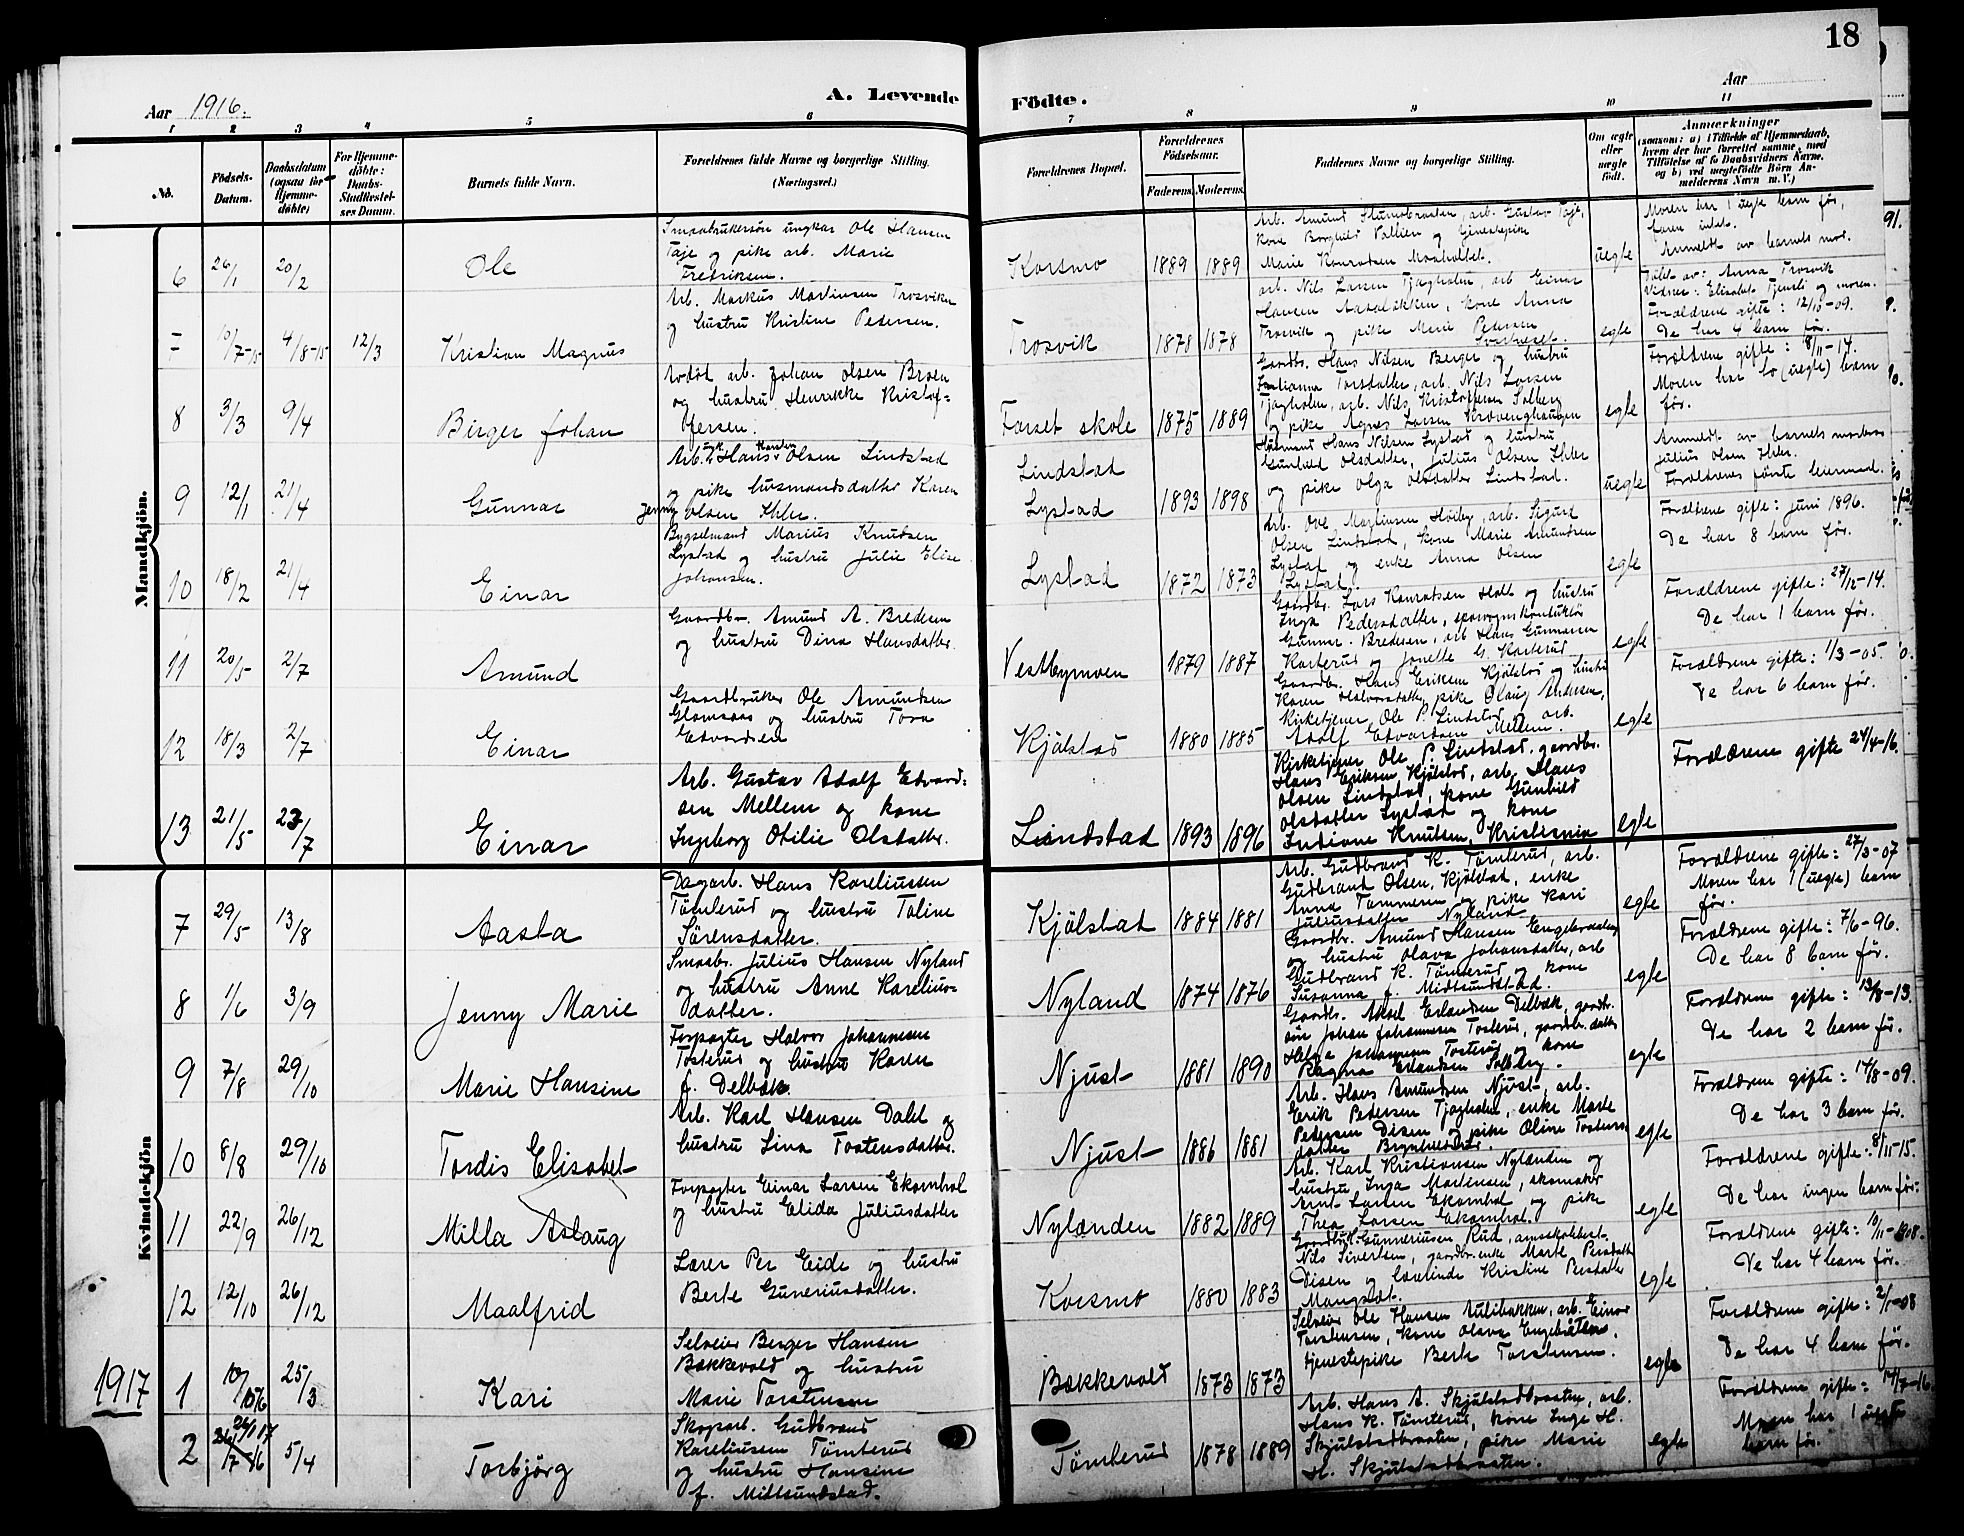 18
Aar 1916.
A. Levende
Födte.
Aar
1 2 3 4 5 6
7 8 9 10 11
No.
Födsels-
Datum.
Daabsdatum
(ogsaa for
Hjemme-
döbte)
For Hjemme-
döbte:
Daabs-
Stadfæstel-
ses Datum.
Barnets fulde Navn.
Forældrenes fulde Navne og borgerlige Stilling.
(Næringsvei.)
Forældrenes Bopæl.
Forældrenes
Födselsaar.
Faderens. Moderens.
Faddernes Navne og borgerlige Stilling.
Om ægte
eller
uægte
født.
Anmærkninger
(saasom: a) i Tilfælde af Hjemmedaab,
hvem der har forrettet samme, med
Tilföielse af to Daabsvidners Navne,
og b) ved uægtefödte Börn An-
melderens Navn m. V.)
Mandkjön.
6 26/1 20/2 Ole
Smaabrukersön ungkar Ole Hansen
Taje og pike arb. Marie
Fredriksen.
Korsmo 1889 1889
Marie Konradsen
uegte
Moren har 1 uegte barn før,
faren intet.
Anmeldt av barnets mor.
7 10/7-15 4/8-15 12/3 Kristian Magnus
Arb. Markus Martinsen Trosviken
og hustru Kristine Pedersen.
Trosvik 1878 1878
arb. Nils Larsen Tjægholen, arb. Einar
Trosvik og pike Marie Pedersen
egte
Døbt av: Anna Trosvik
Forældrene gifte: 12/10-09.
De har 4 barn før.
8 3/3 9/4 Birger Johan
Avdöd arb. Johan Olsen Braen
og hustru Henrikke Kristof-
fersen.
Forset skole 1875 1889
Gaardbr. Hans Nilsen Berger og hustru
Julianna Torsdatter, arb. Nils Larsen
Tjægholen, arb. Nils Kristoffersen Solberg
og pike Agnes Larsen
egte
Forældrene gifte: 8/11-14.
Moren har to (uegte) barn
før.
9 12/1 21/4 Gunnar
Arb. Hans Olsen Lindstad
og pike husmandsdatter Karen
Jenny Olsen Ihler.
Lindstad
Lystad 1893 1898
Husmand Hans Nilsen Lystad og hustru
Gunhild Olsdatter, Julius Olsen Ihler
og pike Olga Olsdatter Lindstad.
uegte
Anmeldt av barnets morbror
Julius Olsen Ihler.
Forældrenes første leiermaal.
10 18/2 21/4 Einar
Bygselmand Marius Knudsen
Lystad og hustru Julie Elise
Johansen.
Lystad 1872 1873
Arb. Ove Martinsen Høiby, arb. Sigurd
Olsen Lindstad, kone Marie Amundsen
Lystad og enke Anna Olsen
Lystad.
egte
Forældrene gifte: juni 1896.
De har 8 barn før.
11 20/5 2/7 Amund
Gaardbr. Amund A. Bredesen
og hustru Dina Hansdatter.
Vestbymoen 1879 1887
Gaardbr. Lars Konradsen Holt og hustru
Inga Pedersdatter, sporvognskonduktör
Gunnar Bredesen, arb. Hans Gunnarsen
Karterud og Jonette G. Karterud
egte
Forældrene gifte: 27/12-14.
De har 1 barn før.
12 18/3 2/7 Einar
Gaardbruker Ole Amundsen
Glomsaas og hustru Tora
Edvardsen
Kjölstad 1880 1885
Gaardbr. Hans Eriksen Kjölstad og hustru
Karen Halvorsdatter, pike Olaug Andersen,
Kirketjener Ole P. Lindstad og arb.
Adolf Edvardsen Mellem.
egte
Forældrene gifte: 1/3-05.
De har 6 barn før.
13 21/5 23/7 Einar
Arb. Gustav Adolf Edvard-
sen Mellem og kone
Ingeborg Otilie Olsdatter.
Lindstad 1893 1896
Kirketjener Ole P. Lindstad, gaardbr.
Hans Eriksen Kjölstad, arb. Hans
Olsen Lindstad, kone Gunhild
Olsdatter Lystad og kone
Indiane Knutsen, Kristiania
egte
Forældrene gifte 24/4-16.
Kvindekjön
7 29/5 13/8 Aasta
Dagarb. Hans Kareliussen
Tömterud og hustru Taline
Sörensdatter.
Kjölstad 1884 1881
Arb. Gudbrand K. Tömterud, arb.
Gudbrand Olsen, Kjölstad, enke
Anna Tommesen og pike Kari
Juliusdatter Nyland
egte
Forældrene gifte: 27/3-07
Moren har 1 (uegte) barn
før.
8 1/6 3/9 Jenny Marie
Smaabr. Julius Hansen Nyland
og hustru Anne Karelius-
datter.
Nyland 1874 1876
Gaardbr. Amund Hansen
og hustru Olava Johansdatter, arb
Gudbrand K. Tömterud og kone
Susanna f. Midtsundstad.
egte
Forældrene gifte: 7/6-96.
De har 8 barn før.
9 7/8 29/10 Marie Hansine
Forpagter Halvor Johannesen
Tosterud og hustru Karen
f. Delbæk.
Njust 1881 1890
Gaardbr. Aksel Erlandsen Delbæk, gaardbr.
sön Johan Johannesen Tosterud, gaardbr.datter
Helga Johannesen Tosterud og kone
Ragna Erlandsen Solberg.
egte
Forældrene gifte: 13/8-13.
De har 2 barn før.
10 8/8 29/10 Tordis Elisabet
Arb. Karl Hansen Dalet og
hustru Lina Tostensdatter.
Njust 1886 1881
Arb. Hans Amundsen Njust, arb.
Erik Pedersen Tjægholen, enke Marte
Pedersen Disen og pike Oline Tostens-
datter
egte
Forældrene gifte: 14/8-09.
De har 3 barn før.
11 22/9 26/12 Milla Aslaug
Forpagter Einar Larsen Ekornhol
og hustru Elida Juliusdatter
Nylænden 1882 1889
Arb. Karl Kristiansen Nylænden og
hustru Inga Martinsen, skomaker
Arnt Larsen Ekornhol og pike
Thea Larsen Ekornhol.
egte
Forældrene gifte: 8/11-15.
De har ingen barn før.
12 12/10 26/12 Maalfrid
Lærer Per Eide og hustru
Berte Guneriusdatter.
Korsmo 1880 1883
Nils Sivertsen, gaardbr.enke Marte Persdatter
Disen og lærerinde Kristine Persdatter
Mangset.
egte
Forældrene gifte: 10/11-1908.
De har 4 barn før.
1917
1 10/10 16 25/3 Kari
Selveier Berger Hansen
Bækkevold og hustru
Marie Torstensen
Bækkevold 1873 1873
Selveier Ole Hansen Aulibakken, arb. Einar
Torstensen, kone Olava Engebråten,
tjenestepike Berte Torstensen.
egte
Forældrene gifte: 2/1-08
De har 4 barn før.
2 26/1 17 5/4 Torbjörg
Skogarb. Gudbrand
Kareliussen Tömterud
og hustru Hansine
f. Midtsundstad.
Tömterud 1878 1889
Arb. Hans A. Skjulstadbraaten, arb.
Hans K. Tömterud, kone Inge H.
Skjulstadbraaten, pike Marie
H. Skjulstadbraaten.
egte
Moren har 1 uegte
barn før.